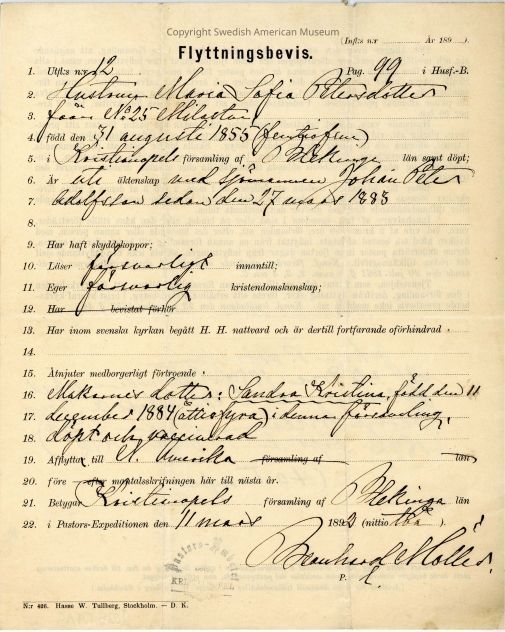 Copyright Swedish American Museum
(Infl:s n:r År 189 ).
Flyttningsbevis.
1. Utfl:s n:r 12 Pag. 99 i Husf.-B.
2. Hustrun Maria Sofia Petersdotter
3. från No 25
4. född den 31 augusti 1855 (femtiofem)
5. i Kristianopels församling af Blekinge län samt döpt;
6. Är uti äktenskap med sjömannen Johan Peter
7. Adolfsson sedan den 27 mars 1883
8.
9. Har haft skyddskoppor;
10. Läser försvarligt innantill;
11. Eger försvarlig kristendomskunskap;
12. Har bevistat förhör
13. Har inom svenska kyrkan begått H. H. nattvard och är dertill fortfarande oförhindrad
14.
15. Åtnjuter medborgerligt förtroende
16. Makarnes dotter: Sandra Kristina, född den 11
17. december 1884 (åttiofyra) i denna församling,
18. döpt och vaccinerad
19. Afflyttar till N. Amerika församling af län
20. före efter mantalsskrifningen här till nästa år.
21. Betygar Kristianopels församling af Blekinge län
22. i Pastors-Expeditionen den 11 mars 1892 (nittio två ).
P. L.
N:r 426. Hasse W. Tullberg, Stockholm. — D. K.